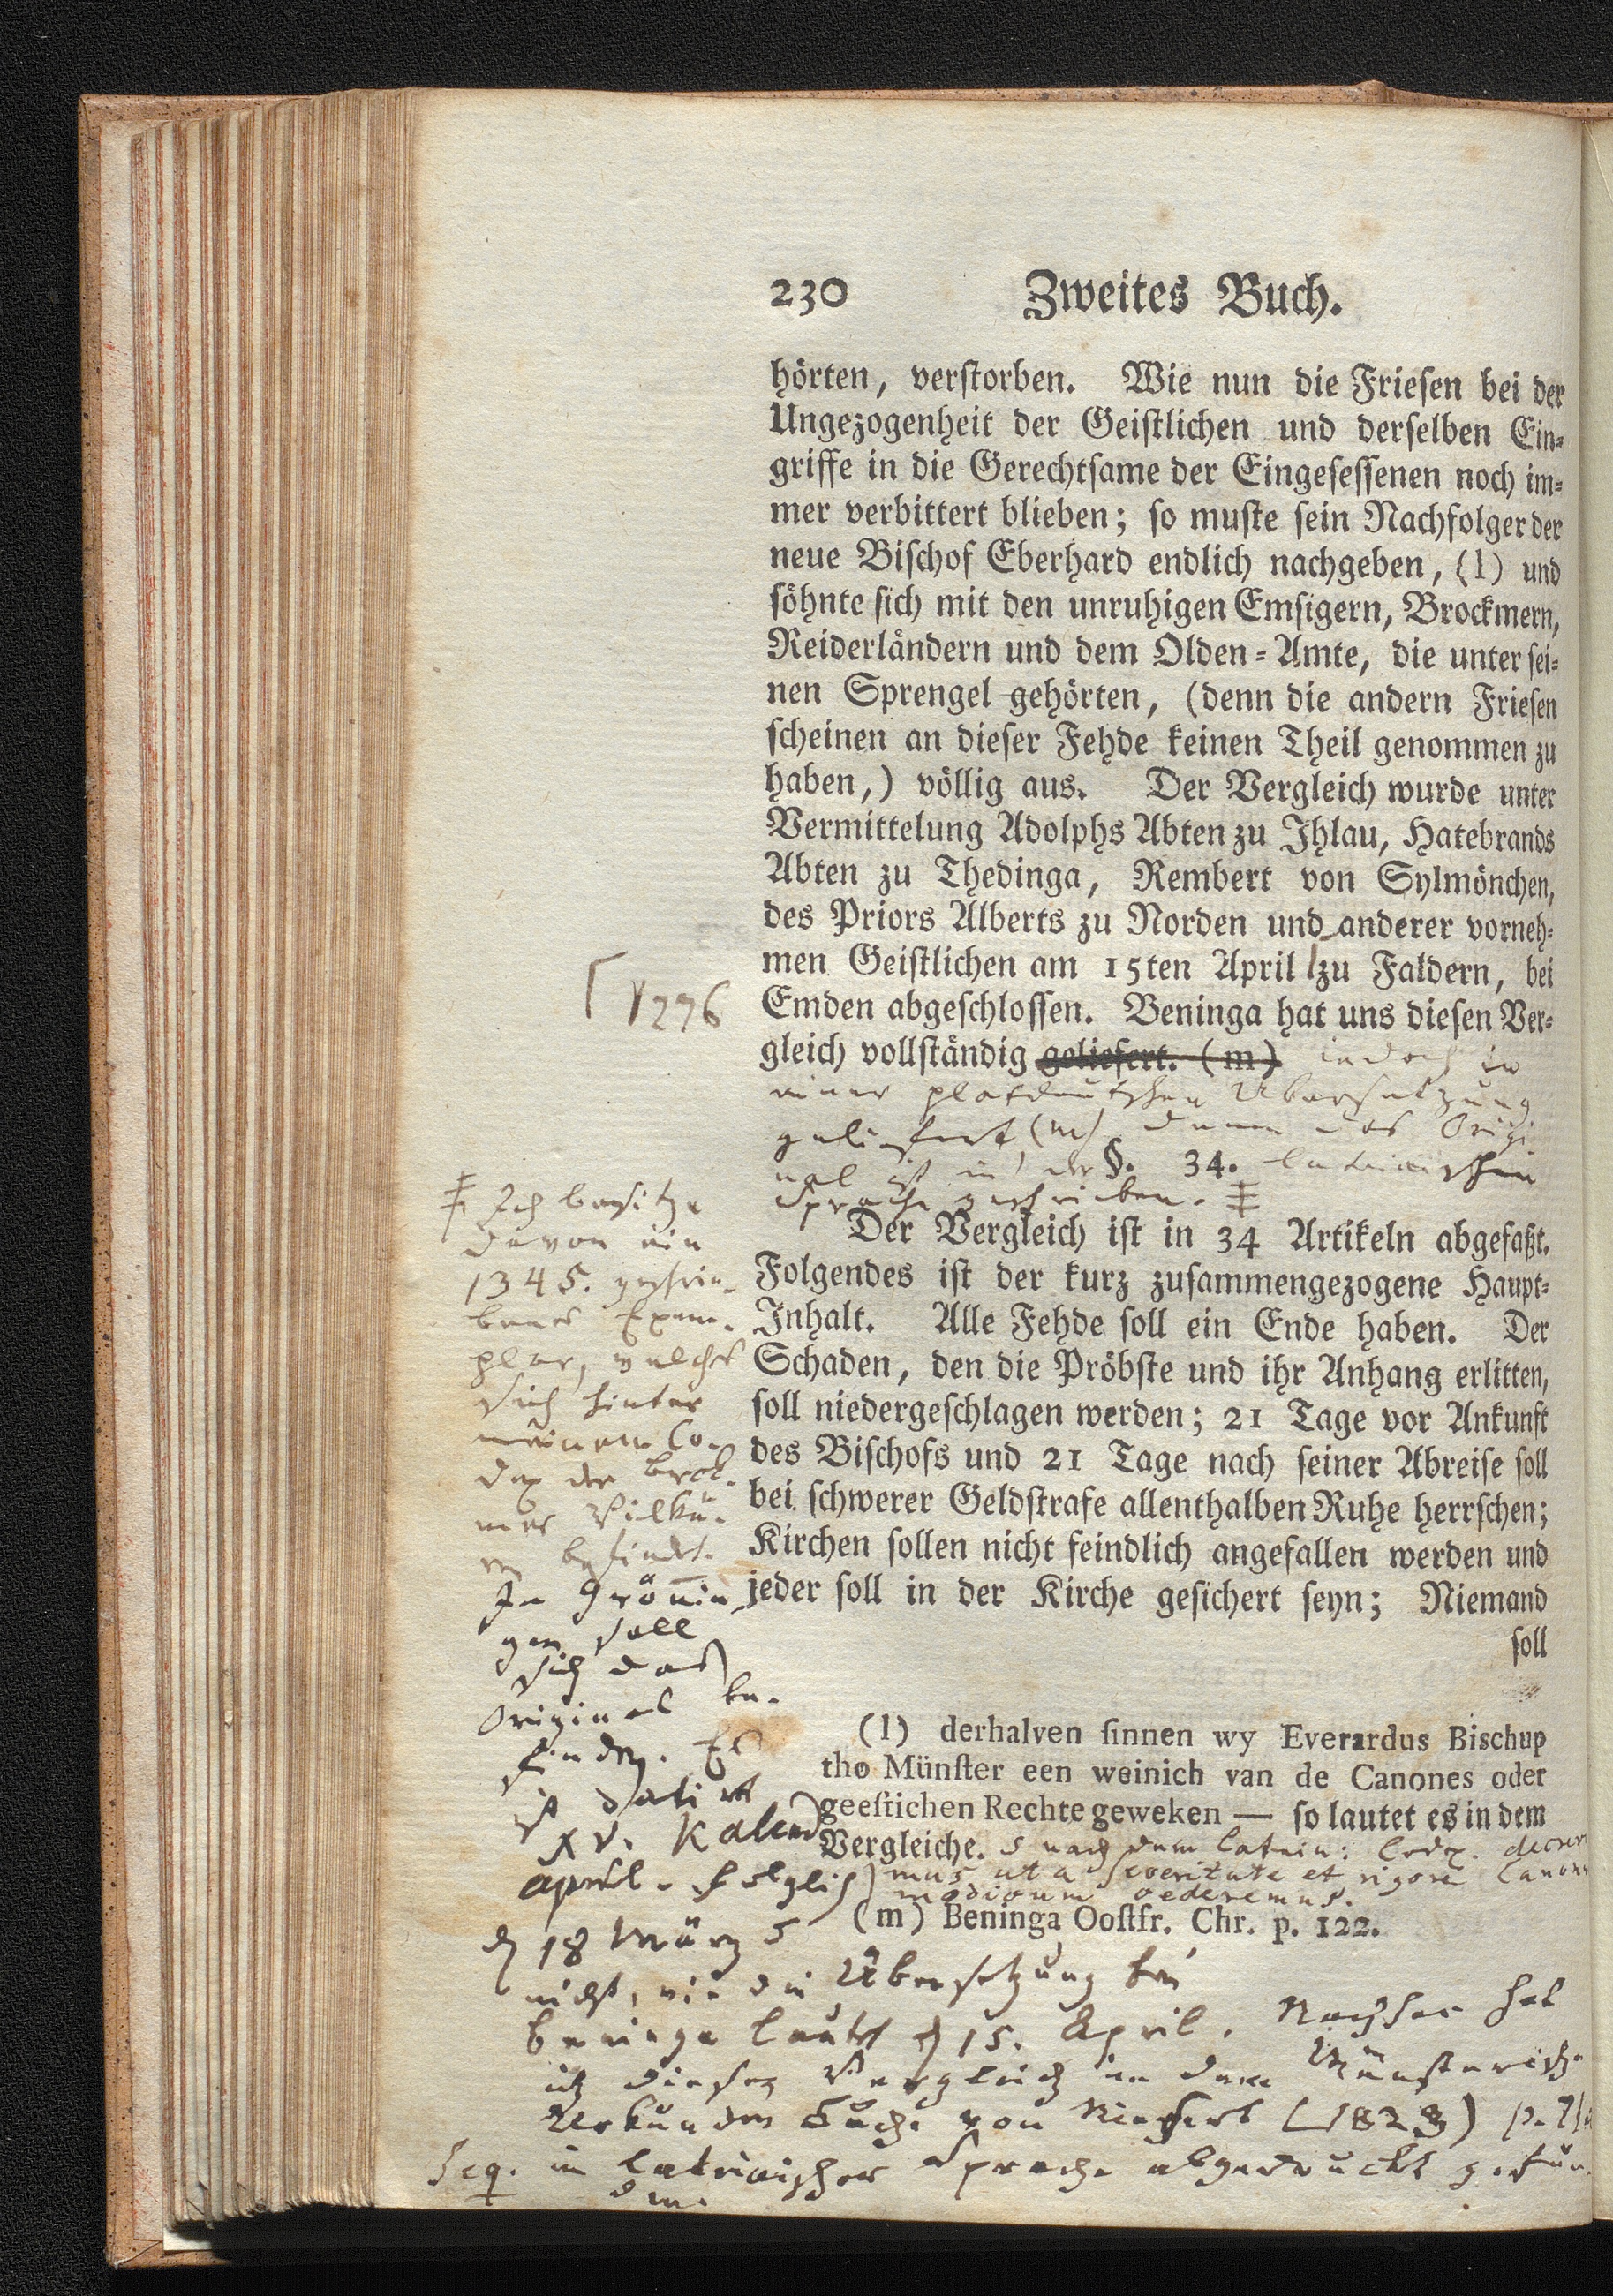 230 Zweites Buch.
hörten, verstorben. Wie nun die Friesen bei der
Ungezogenheit der Geistlichen und derselben Ein-
griffe in die Gerechtsame der Eingesessenen noch im-
mer verbittert blieben; so muste sein Nachfolger der
neue Bischof Eberhard endlich nachgeben, (l) und
söhnte sich mit den unruhigen Emsigern, Brockmern,
Reiderländern und dem Olden-Amte, die unter sei-
nen Sprengel gehörten, (denn die andern Friesen
scheinen an dieser Fehde keinen Theil genommen zu
haben,) völlig aus. Der Vergleich wurde unter
Vermittelung Adolphs Abten zu Ihlau, Hatebrands
Abten zu Thedinga, Rembert von Sylmönchen,
des Priors Alberts zu Norden und anderer vorneh-
men Geistlichen am 15ten April zu Faldern, bei
Emden abgeschlossen. Beninga hat uns diesen Ver-
gleich vollständig geliefert. (m) jedoch in
einer platdeutschen Übersetzung
geliefert (m) denn das Origi
nal ist in der §. 34. lateinischen
Sprache geschrieben. ‡
Der Vergleich ist in 34 Artikeln abgefaßt.
Folgendes ist der kurz zusammengezogene Haupt-
Inhalt. Alle Fehde soll ein Ende haben. Der
Schaden, den die Pröbste und ihr Anhang erlitten,
soll niedergeschlagen werden; 21 Tage vor Ankunft
des Bischofs und 21 Tage nach seiner Abreise soll
bei schwerer Geldstrafe allenthalben Ruhe herrschen;
Kirchen sollen nicht feindlich angefallen werden und
jeder soll in der Kirche gesichert seyn; Niemand
soll
(l) derhalven sinnen wy Everardus Bischup
tho Münster een weinich van de Canones oder
geestichen Rechte geweken — so lautet es in dem
Vergleiche. nach dem latein: Codex. decrevi
mus ut a severitate et rigore Canonu
modicum cederemus.
(m) Beninga Oostfr. Chr. p. 122.
1276
‡ Ich besitze
davon ein
1345. geschrie-
benes Exem-
plar, welches
sich hinter
meinem Co-
dex der Brok-
mer Willkü-
ren befindet.
In Grönin
gen soll
sich das
Original be-
finden. Es
ist datirt
XV. Kalend
april. folglich
d 18 März
nicht, wie die Übersetzung bei
Beninga lautet d 15. April. Nachher hab
ich diesen Vergleich in dem Münsterische
Urkunden Buche von Niesert (1823) p.
seq. in lateinischer Sprache abgedruckt gefun
den.